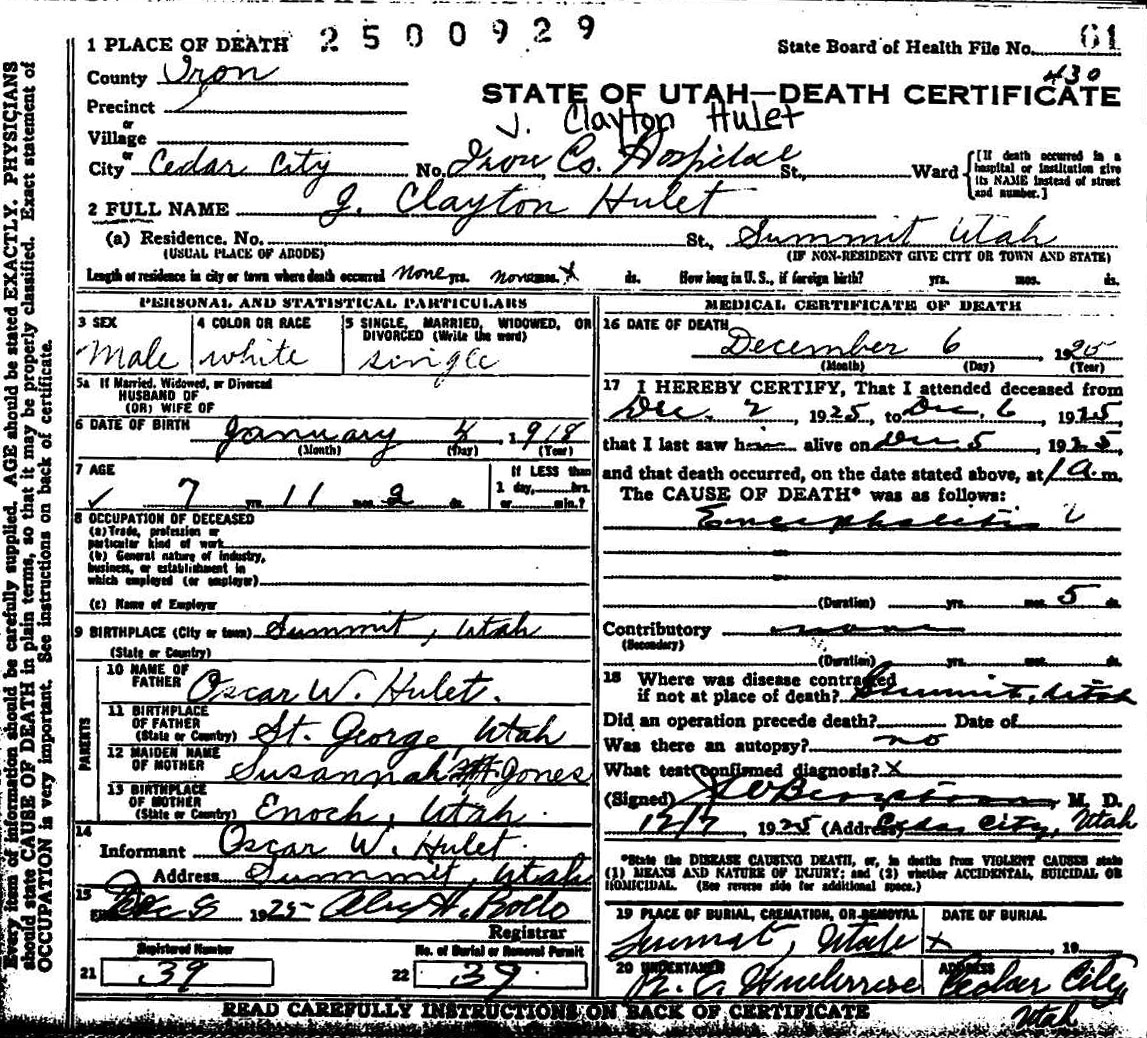 2500929
1 PLACE OF DEATH
State Board of Health File No. 61
County Iron
430
Precinct
STATE OF UTAH—DEATH CERTIFICATE
or
J. Clayton Hulet
Village
or
City Cedar City No. Iron Co. Hospital St., Ward
[If death occurred in a hospital or institution give its NAME instead of street and number.]
2 FULL NAME J. Clayton Hulet
(a) Residence. No. St., Summit Utah
(USUAL PLACE OF ABODE) (IF NON-RESIDENT GIVE CITY OR TOWN AND STATE)
Length of residence in city or town where death occurred None yrs. none mos. x ds. How long in U. S., if foreign birth? yrs. mos. ds.
PERSONAL AND STATISTICAL PARTICULARS
3 SEX
Male
4 COLOR OR RACE
white
5 SINGLE, MARRIED, WIDOWED, OR
DIVORCED (Write the word)
single
5a If Married, Widowed, or Divorced
HUSBAND OF
(OR) WIFE OF
6 DATE OF BIRTH January 4 1918
(Month) (Day) (Year)
7 AGE
7 yrs. 11 mos. 2 ds.
If LESS than
1 day, hrs.
or min.?
8 OCCUPATION OF DECEASED
(a) Trade, profession or
particular kind of work
(b) General nature of industry,
business, or establishment in
which employed (or employer)
(c) Name of Employer
9 BIRTHPLACE (City or town) Summit, Utah
(State or Country)
PARENTS
10 NAME OF
FATHER Oscar W. Hulet.
11 BIRTHPLACE
OF FATHER
(State or Country) St. George, Utah
12 MAIDEN NAME
OF MOTHER Susannah Jones
13 BIRTHPLACE
OF MOTHER
(State or Country) Enoch, Utah.
14
Informant Oscar W. Hulet.
Address Summit, Utah
15
Dec 8 1925
Registrar
Registered Number
21 39
No. of Burial or Removal Permit
22 39
MEDICAL CERTIFICATE OF DEATH
16 DATE OF DEATH
December 6 1925
(Month) (Day) (Year)
17 I HEREBY CERTIFY, That I attended deceased from
Dec. 2, 1925, to Dec. 6, 1925,
that I last saw him alive on Dec 5, 1925,
and that death occurred, on the date stated above, at 1 a. m.
The CAUSE OF DEATH* was as follows:
Encephalitis
(Duration) yrs. mos. 5 ds.
Contributory none
(Secondary)
(Duration) yrs. mos. ds.
18 Where was disease contracted
if not at place of death? Summit, Utah
Did an operation precede death? Date of
Was there an autopsy? no
What test confirmed diagnosis? x
(Signed) M. D.
12/7 1925 (Address) Cedar City, Utah
*State the DISEASE CAUSING DEATH, or, in deaths from VIOLENT CAUSES state
(1) MEANS AND NATURE OF INJURY; and (2) whether ACCIDENTAL, SUICIDAL OR
HOMICIDAL. (See reverse side for additional space.)
19 PLACE OF BURIAL, CREMATION, OR REMOVAL
Summit, Utah
DATE OF BURIAL
x, 19
20 UNDERTAKER
ADDRESS
Cedar City
Utah
READ CAREFULLY INSTRUCTIONS ON BACK OF CERTIFICATE
Every item of information should be carefully supplied. AGE should be stated EXACTLY. PHYSICIANS
should state CAUSE OF DEATH in plain terms, so that it may be properly classified. Exact statement of
OCCUPATION is very important. See instructions on back of certificate.